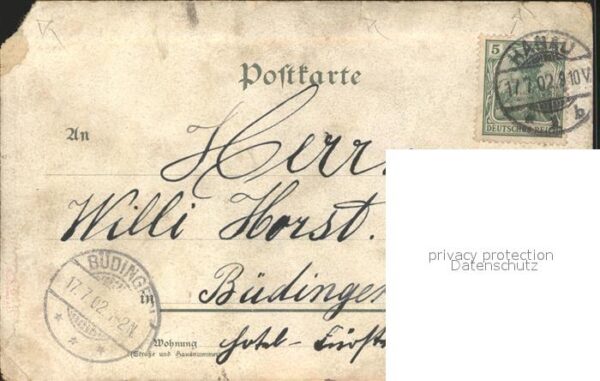 5
DEUTSCHES REICH
HANAU
17.7.02.9-10V.
b
Postkarte
An
Herrn
Willi Horst.
privacy protection
Datenschutz
BÜDINGEN
17.7.02. 1-2N.
in
Büdingen
Wohnung
(Straße und Hausnummer)
Hotel - Fürst